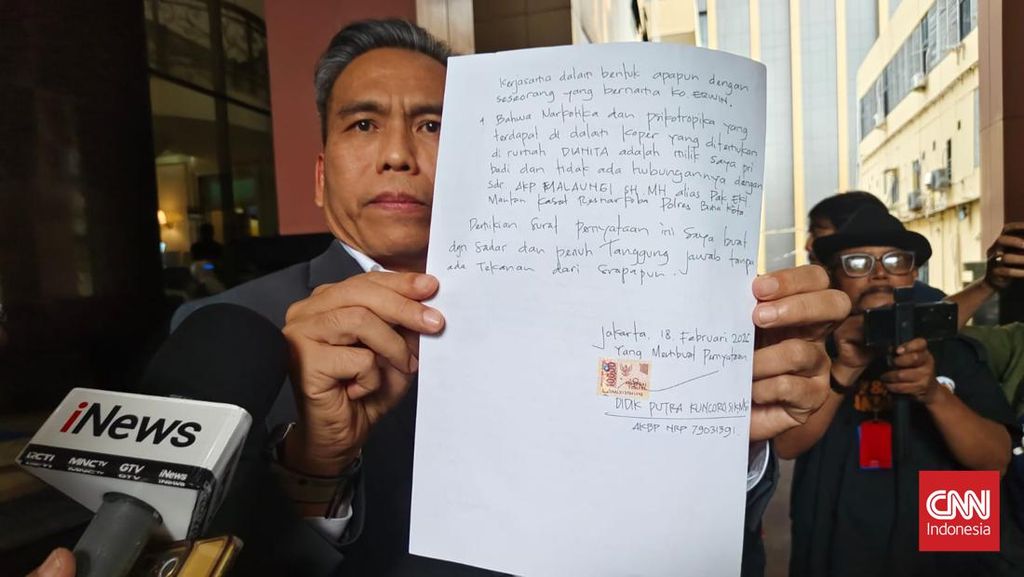 Kerjasama dalam bentuk apapun dengan
seseorang yang bernama Ko. ERWIN.
Bahwa Narkotika dan psikotropika yang
terdapat di dalam Koper yang ditemukan
di rumah DIANITA adalah milik saya pri
badi dan tidak ada hubungannya dengan
sdr. AKP MALAUNGI SH, MH alias Pak EKI
Mantan Kasat Resnarkoba Polres Bima Kota
Demikian Surat Pernyataan ini Saya buat
dgn Sadar dan penuh Tanggung jawab tanpa
ada Tekanan dari Siapapun.
Jakarta, 18 Februari 2026
Yang Membuat Pernyataan
10000
DIDIK PUTRA KUNCORO SIK MSi
AKBP NRP 79031391.
iNews
RCTI MNCTV GTV iNews
CNN
Indonesia